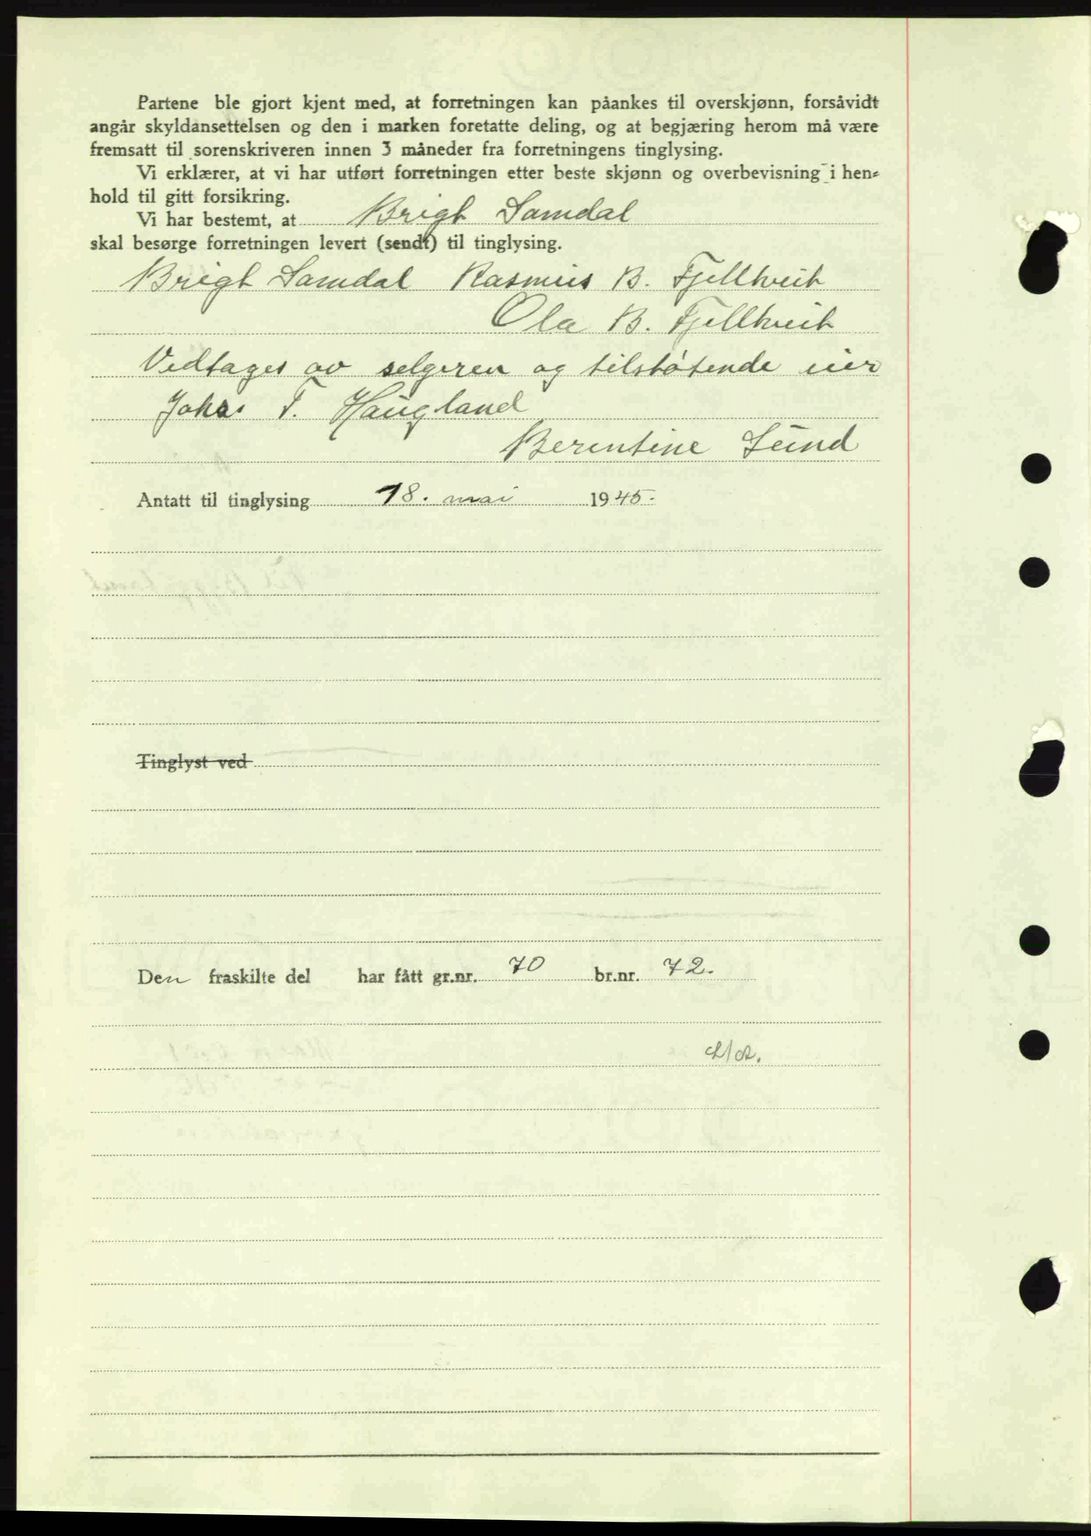 Partene ble gjort kjent med, at forretningen kan påankes til overskjønn, forsåvidt
angår skyldansettelsen og den i marken foretatte deling, og at begjæring herom må være
fremsatt til sorenskriveren innen 3 måneder fra forretningens tinglysing.
Vi erklærer, at vi har utført forretningen etter beste skjønn og overbevisning i hen-
hold til gitt forsikring.
Vi har bestemt, at Brigt Samdal
skal besørge forretningen levert (sendt) til tinglysing.
Brigt Samdal Rasmus B. Fjelltveit
Ola B. Fjelltveit
Vedtages av selgeren og tilstøtende eier
Johs F. Haugland
Berentine Lund
Antatt til tinglysing 18. mai 1945.
Tinglyst ved
Den fraskilte del har fått gr.nr. 70 br.nr. 72.